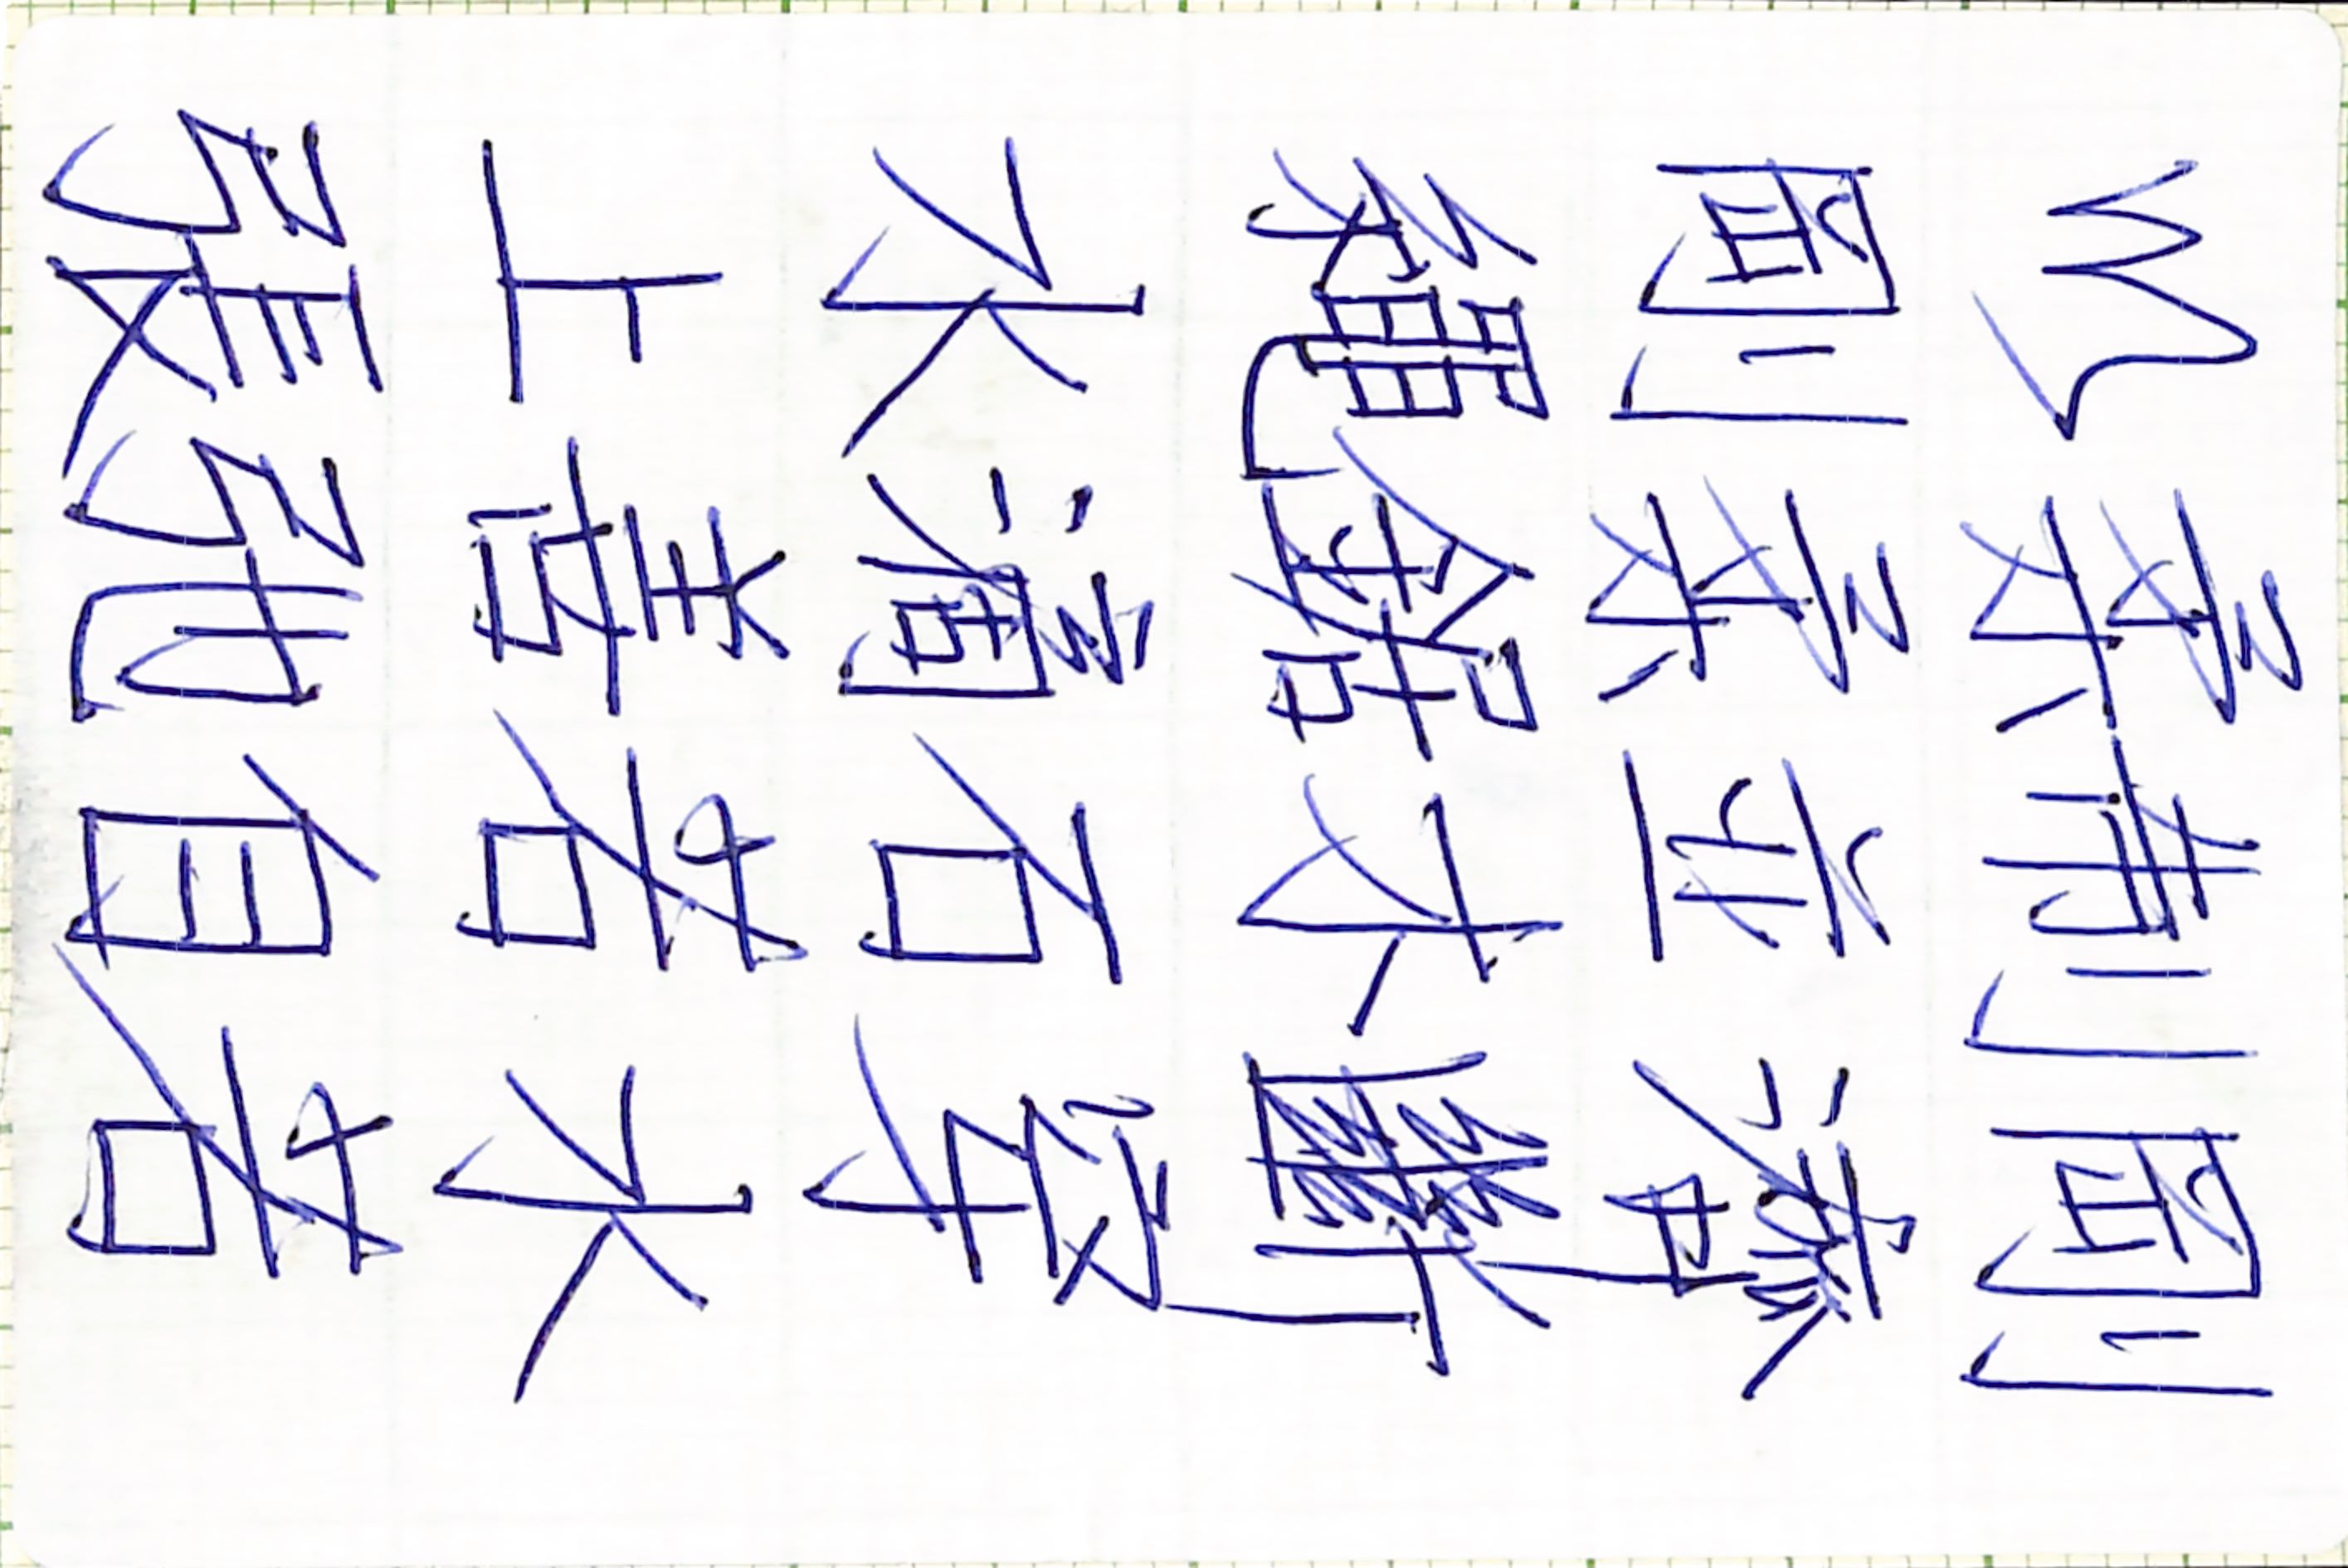 以柔制剛
剛柔並濟
繩鋸木斷
水滴石穿
上善若水
張弛自若